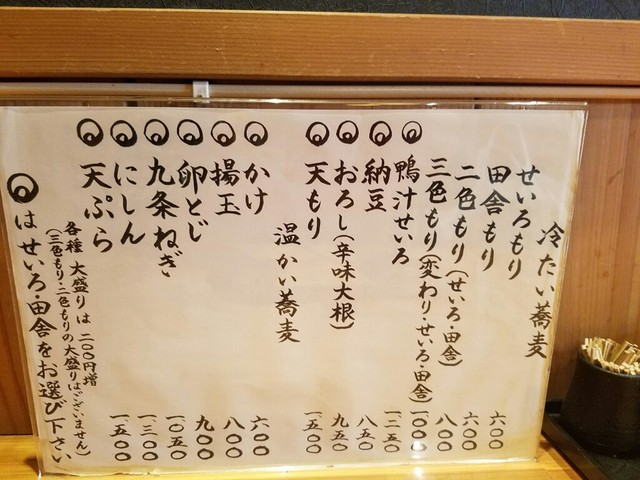 冷たい蕎麦
せいろもり 六〇〇
田舎もり 六〇〇
二色もり(せいろ・田舎) 八〇〇
三色もり(変わり・せいろ・田舎) 一〇〇〇
◎鴨汁せいろ 一二五〇
◎納豆 八五〇
◎おろし(辛味大根) 九五〇
◎天もり 一五〇〇
温かい蕎麦
◎かけ 六〇〇
◎揚玉 八〇〇
◎卵とじ 九〇〇
◎九条ねぎ 一〇五〇
◎にしん 一三〇〇
◎天ぷら 一五〇〇
各種 大盛りは 二〇〇円増
(三色もり・二色もりの大盛りはございません)
◎はせいろ・田舎をお選び下さい